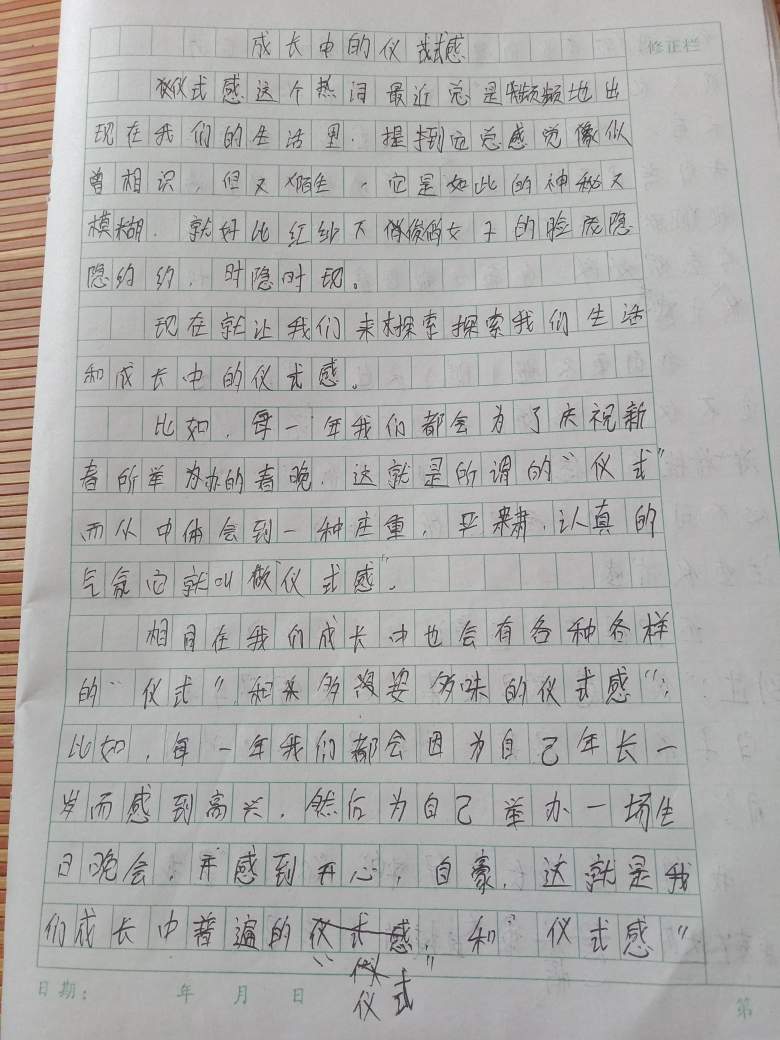 成长中的仪式感
修正栏
仪式感这个热词最近总是频频地出
现在我们的生活里. 提到它总感觉像似
曾相识, 但又陌生, 它是如此的神秘又
模糊. 就好比红纱下俏俊的女子的脸庞隐
隐约约, 时隐时现。
现在就让我们来探索探索我们生活
和成长中的仪式感。
比如, 每一年我们都会为了庆祝新
春所举办的春晚. 这就是所谓的“仪式”
而从中体会到一种庄重, 严肃, 认真的
气氛它就叫做“仪式感”.
相同在我们成长中也会有各种各样
的“仪式”和多姿多味的仪式感“;
比如, 每一年我们都会因为自己年长一
岁而感到高兴. 然后为自己举办一场生
日晚会, 并感到开心, 自豪. 这就是我
们成长中普遍的 和“仪式感”
“仪式”
日期: 年 月 日
第